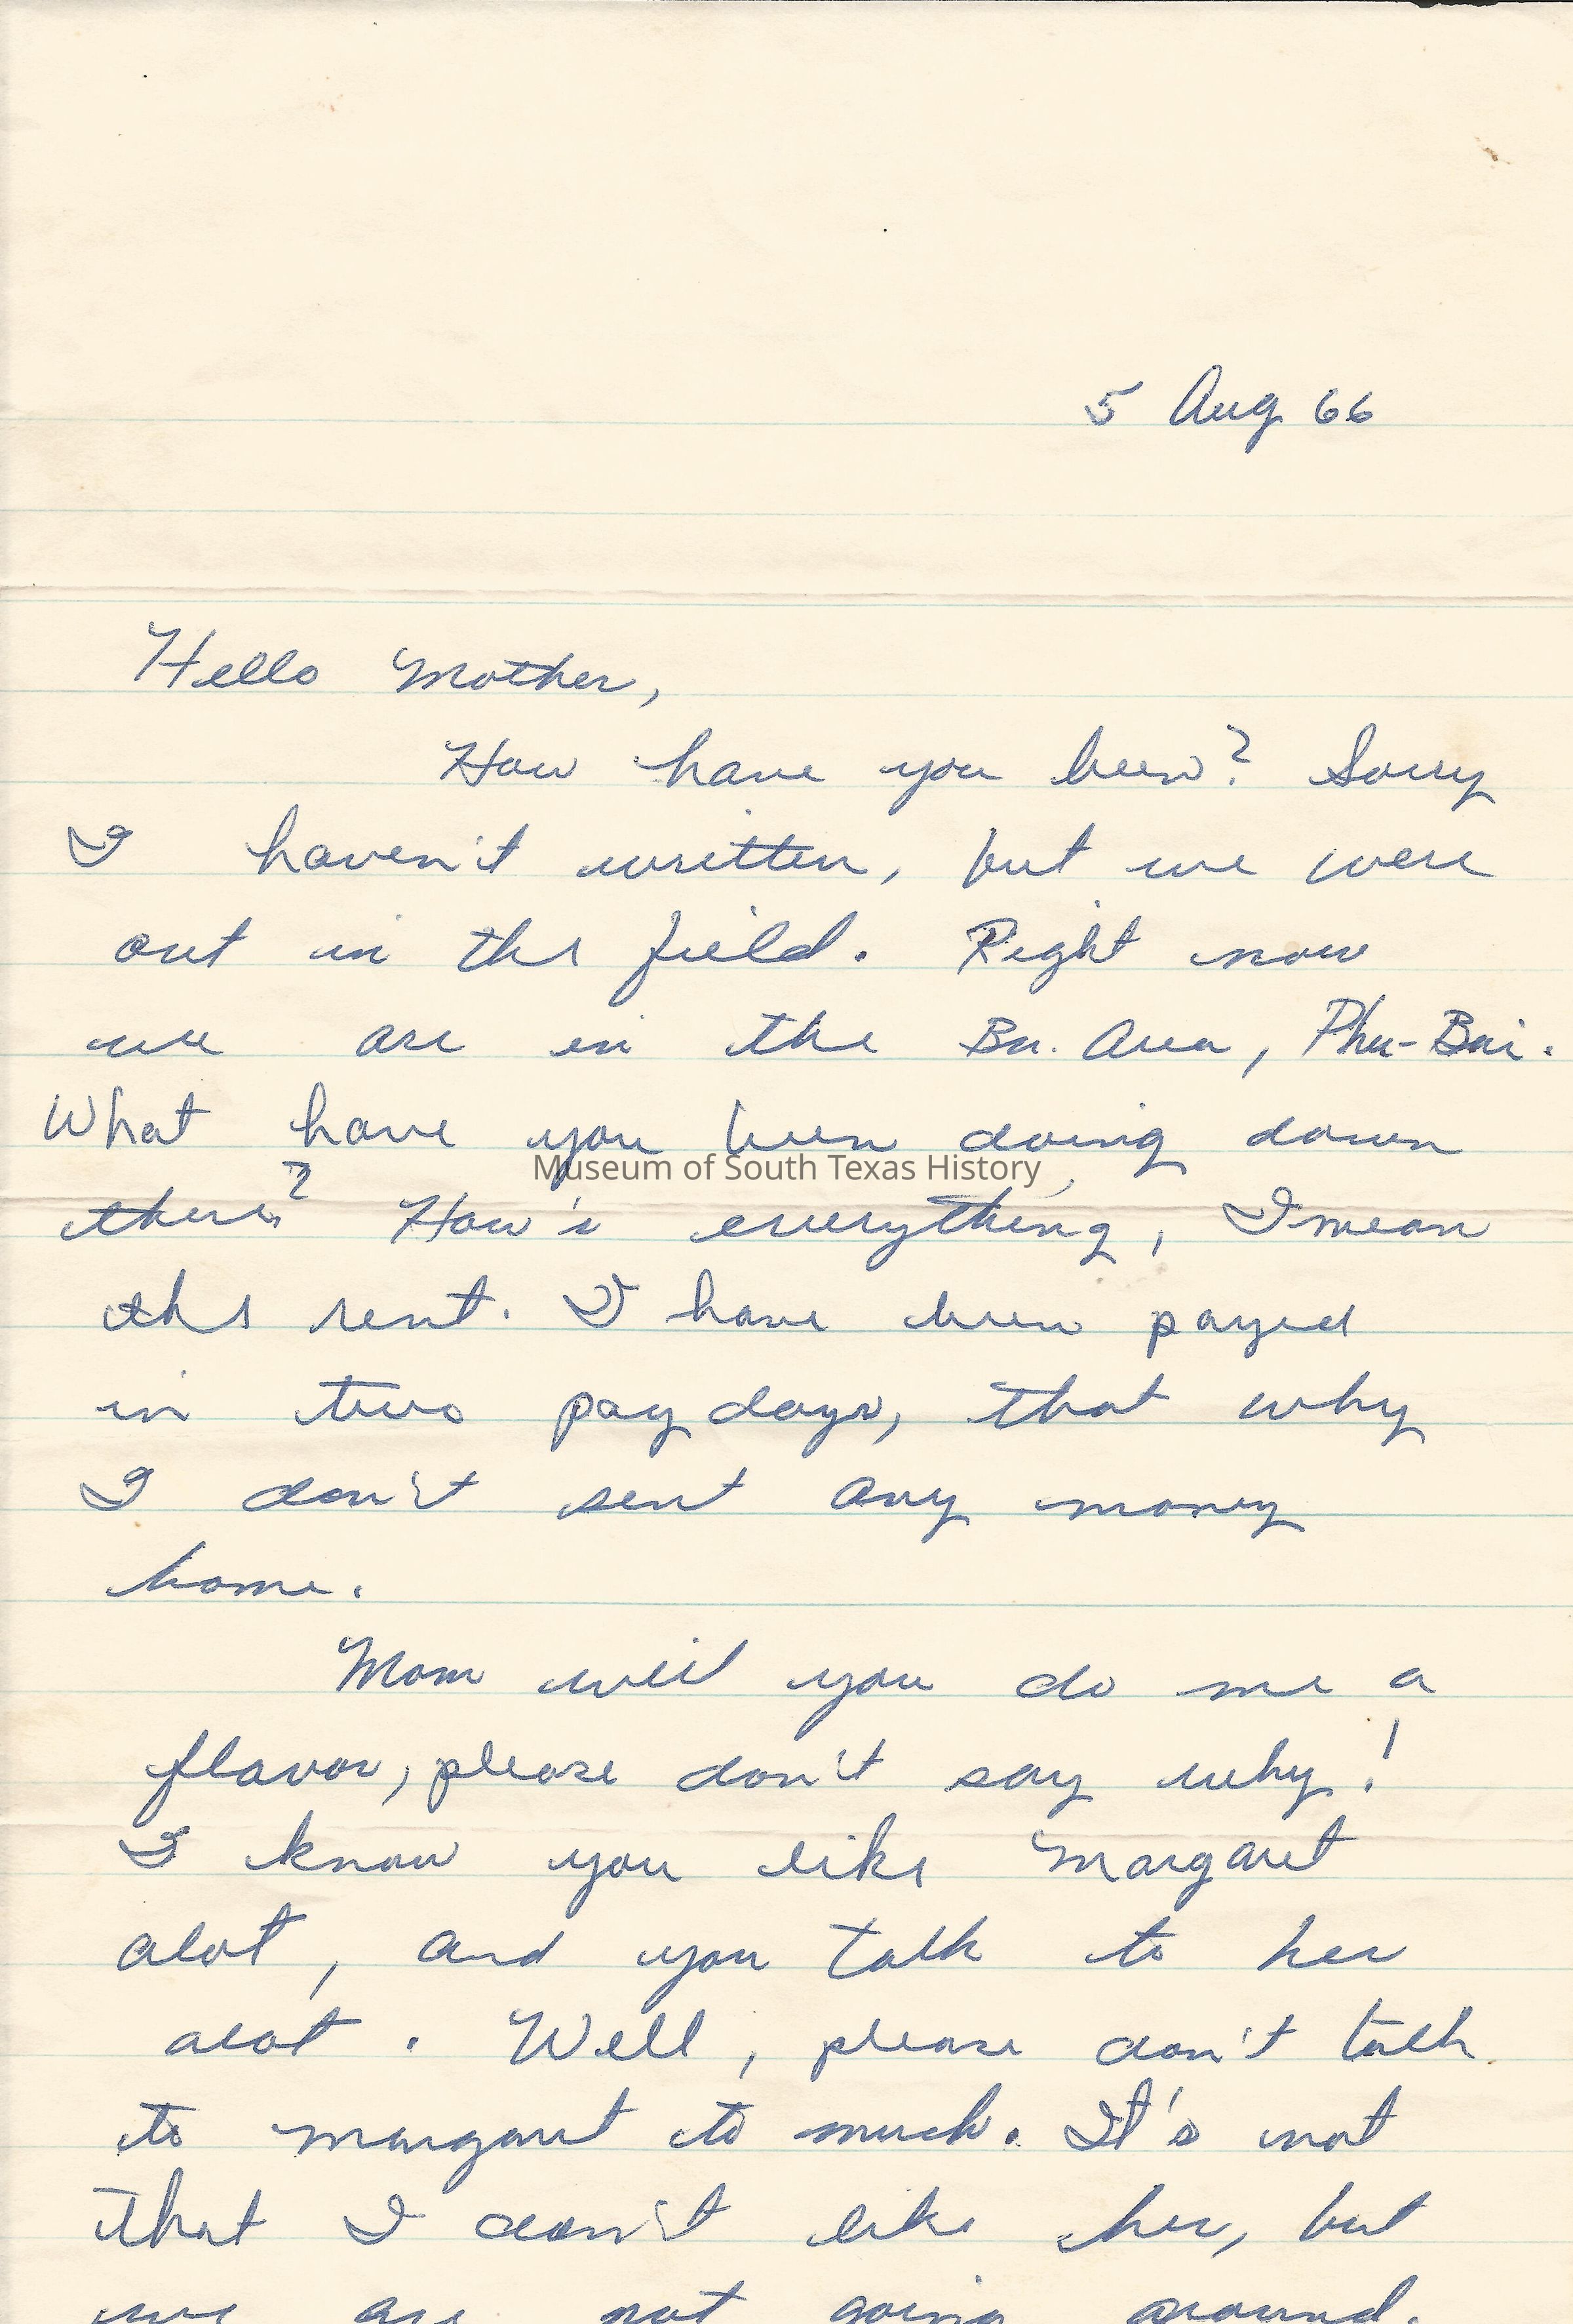 5 Aug 66
Hello Mother,
How have you been? Sorry
I haven't written, but we were
out in the field. Right now
we are in the Bn. Area, Phu-Bai.
What have you been doing down
Museum of South Texas History
there? How's everything, I mean
the rent. I have been payed
in two pay days, that why
I don't sent any money
home.
Mom will you do me a
flavor, please don't say why!
I know you like Margaret
alot, and you talk to her
alot. Well, please don't talk
to margaret to much. It's not
that I don't like her, but
we are not going around.